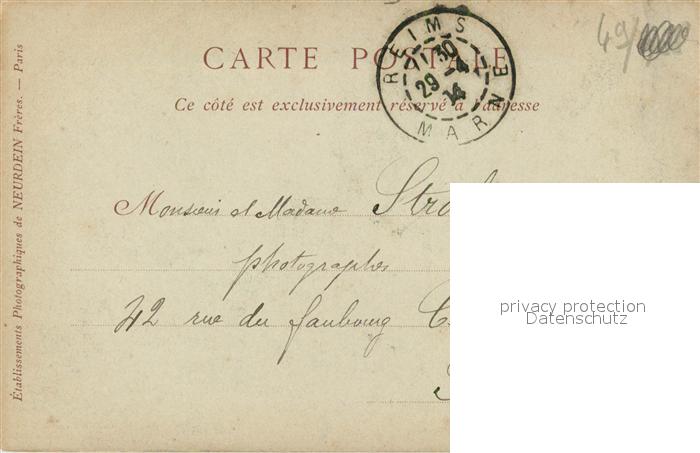 CARTE POSTALE
Ce côté est exclusivement réservé à l'adresse
REIMS
11 30
29 - 4
14
MARNE
49/
Monsieur et Madame
photographes
42 rue du faubourg
Établissements Photographiques de NEURDEIN Frères. — Paris
privacy protection
Datenschutz